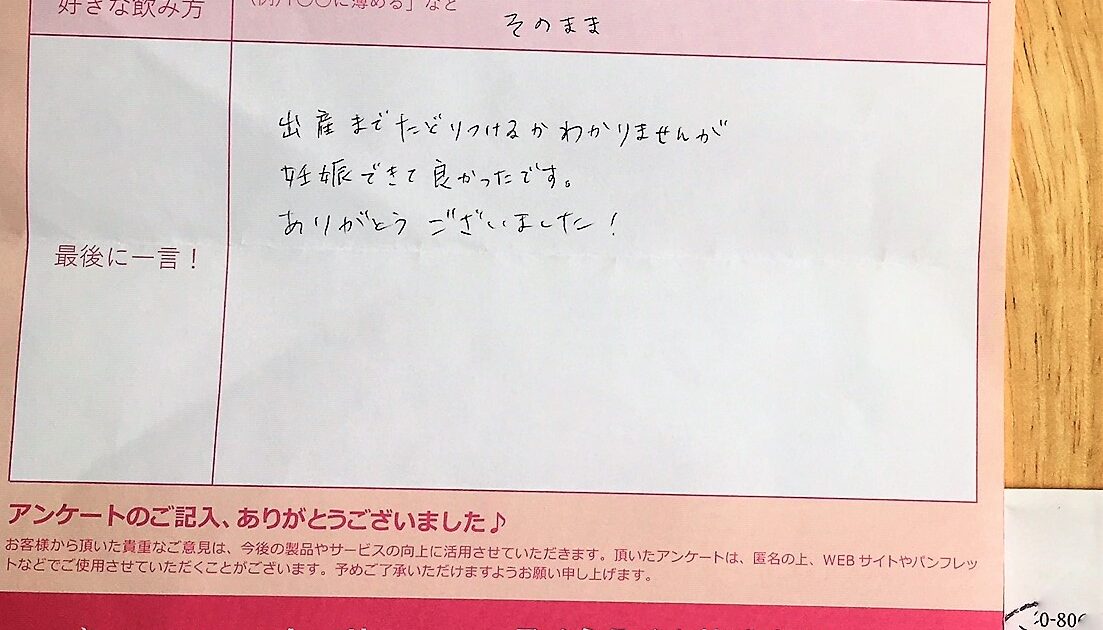 好きな飲み方
(例)「○○に薄める」など
そのまま
出産までたどりつけるかわかりませんが
妊娠できて良かったです。
ありがとうございました!
最後に一言!
アンケートのご記入、ありがとうございました♪
お客様から頂いた貴重なご意見は、今後の製品やサービスの向上に活用させていただきます。頂いたアンケートは、匿名の上、WEBサイトやパンフレッ
トなどでご使用させていただくことがございます。予めご了承いただけますようお願い申し上げます。
0-806